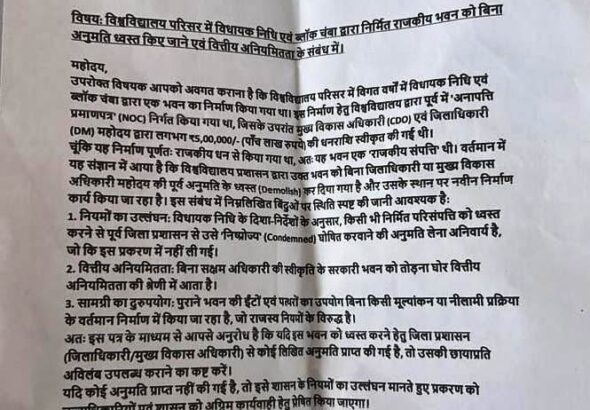 विषय: विश्वविद्यालय परिसर में विधायक निधि एवं ब्लॉक चंबा द्वारा निर्मित राजकीय भवन को बिना
अनुमति ध्वस्त किए जाने एवं वित्तीय अनियमितता के संबंध में।
महोदय,
उपरोक्त विषयक आपको अवगत कराना है कि विश्वविद्यालय परिसर में विगत वर्षों में विधायक निधि एवं
ब्लॉक चंबा द्वारा एक भवन का निर्माण किया गया था। इस निर्माण हेतु विश्वविद्यालय द्वारा पूर्व में 'अनापत्ति
प्रमाणपत्र' (NOC) निर्गत किया गया था, जिसके उपरांत मुख्य विकास अधिकारी (CDO) एवं जिलाधिकारी
(DM) महोदय द्वारा लगभग ₹5,00,000/- (पाँच लाख रुपये) की धनराशि स्वीकृत की गई थी।
चूंकि यह निर्माण पूर्णतः राजकीय धन से किया गया था, अतः यह भवन एक 'राजकीय संपत्ति' थी। वर्तमान में
यह संज्ञान में आया है कि विश्वविद्यालय प्रशासन द्वारा उक्त भवन को बिना जिलाधिकारी या मुख्य विकास
अधिकारी महोदय की पूर्व अनुमति के ध्वस्त (Demolish) कर दिया गया है और उसके स्थान पर नवीन निर्माण
कार्य किया जा रहा है। इस संबंध में निम्नलिखित बिंदुओं पर स्थिति स्पष्ट की जानी आवश्यक है:
1. नियमों का उल्लंघन: विधायक निधि के दिशा-निर्देशों के अनुसार, किसी भी निर्मित परिसंपत्ति को ध्वस्त
करने से पूर्व जिला प्रशासन से उसे 'निष्प्रोज्य' (Condemned) घोषित करवाने की अनुमति लेना अनिवार्य है,
जो कि इस प्रकरण में नहीं ली गई।
2. वित्तीय अनियमितता: बिना सक्षम अधिकारी की स्वीकृति के सरकारी भवन को तोड़ना घोर वित्तीय
अनियमितता की श्रेणी में आता है।
3. सामग्री का दुरुपयोग: पुराने भवन की ईंटों एवं पत्थरों का उपयोग बिना किसी मूल्यांकन या नीलामी प्रक्रिया
के वर्तमान निर्माण में किया जा रहा है, जो राजस्व नियमों के विरुद्ध है।
अतः इस पत्र के माध्यम से आपसे अनुरोध है कि यदि इस भवन को ध्वस्त करने हेतु जिला प्रशासन
(जिलाधिकारी/मुख्य विकास अधिकारी) से कोई लिखित अनुमति प्राप्त की गई है, तो उसकी छायाप्रति
अविलंब उपलब्ध कराने का कष्ट करें।
यदि कोई अनुमति प्राप्त नहीं की गई है, तो इसे शासन के नियमों का उल्लंघन मानते हुए प्रकरण को
एवं शासन को अग्रिम कार्यवाही हेतु प्रेषित किया जाएगा।